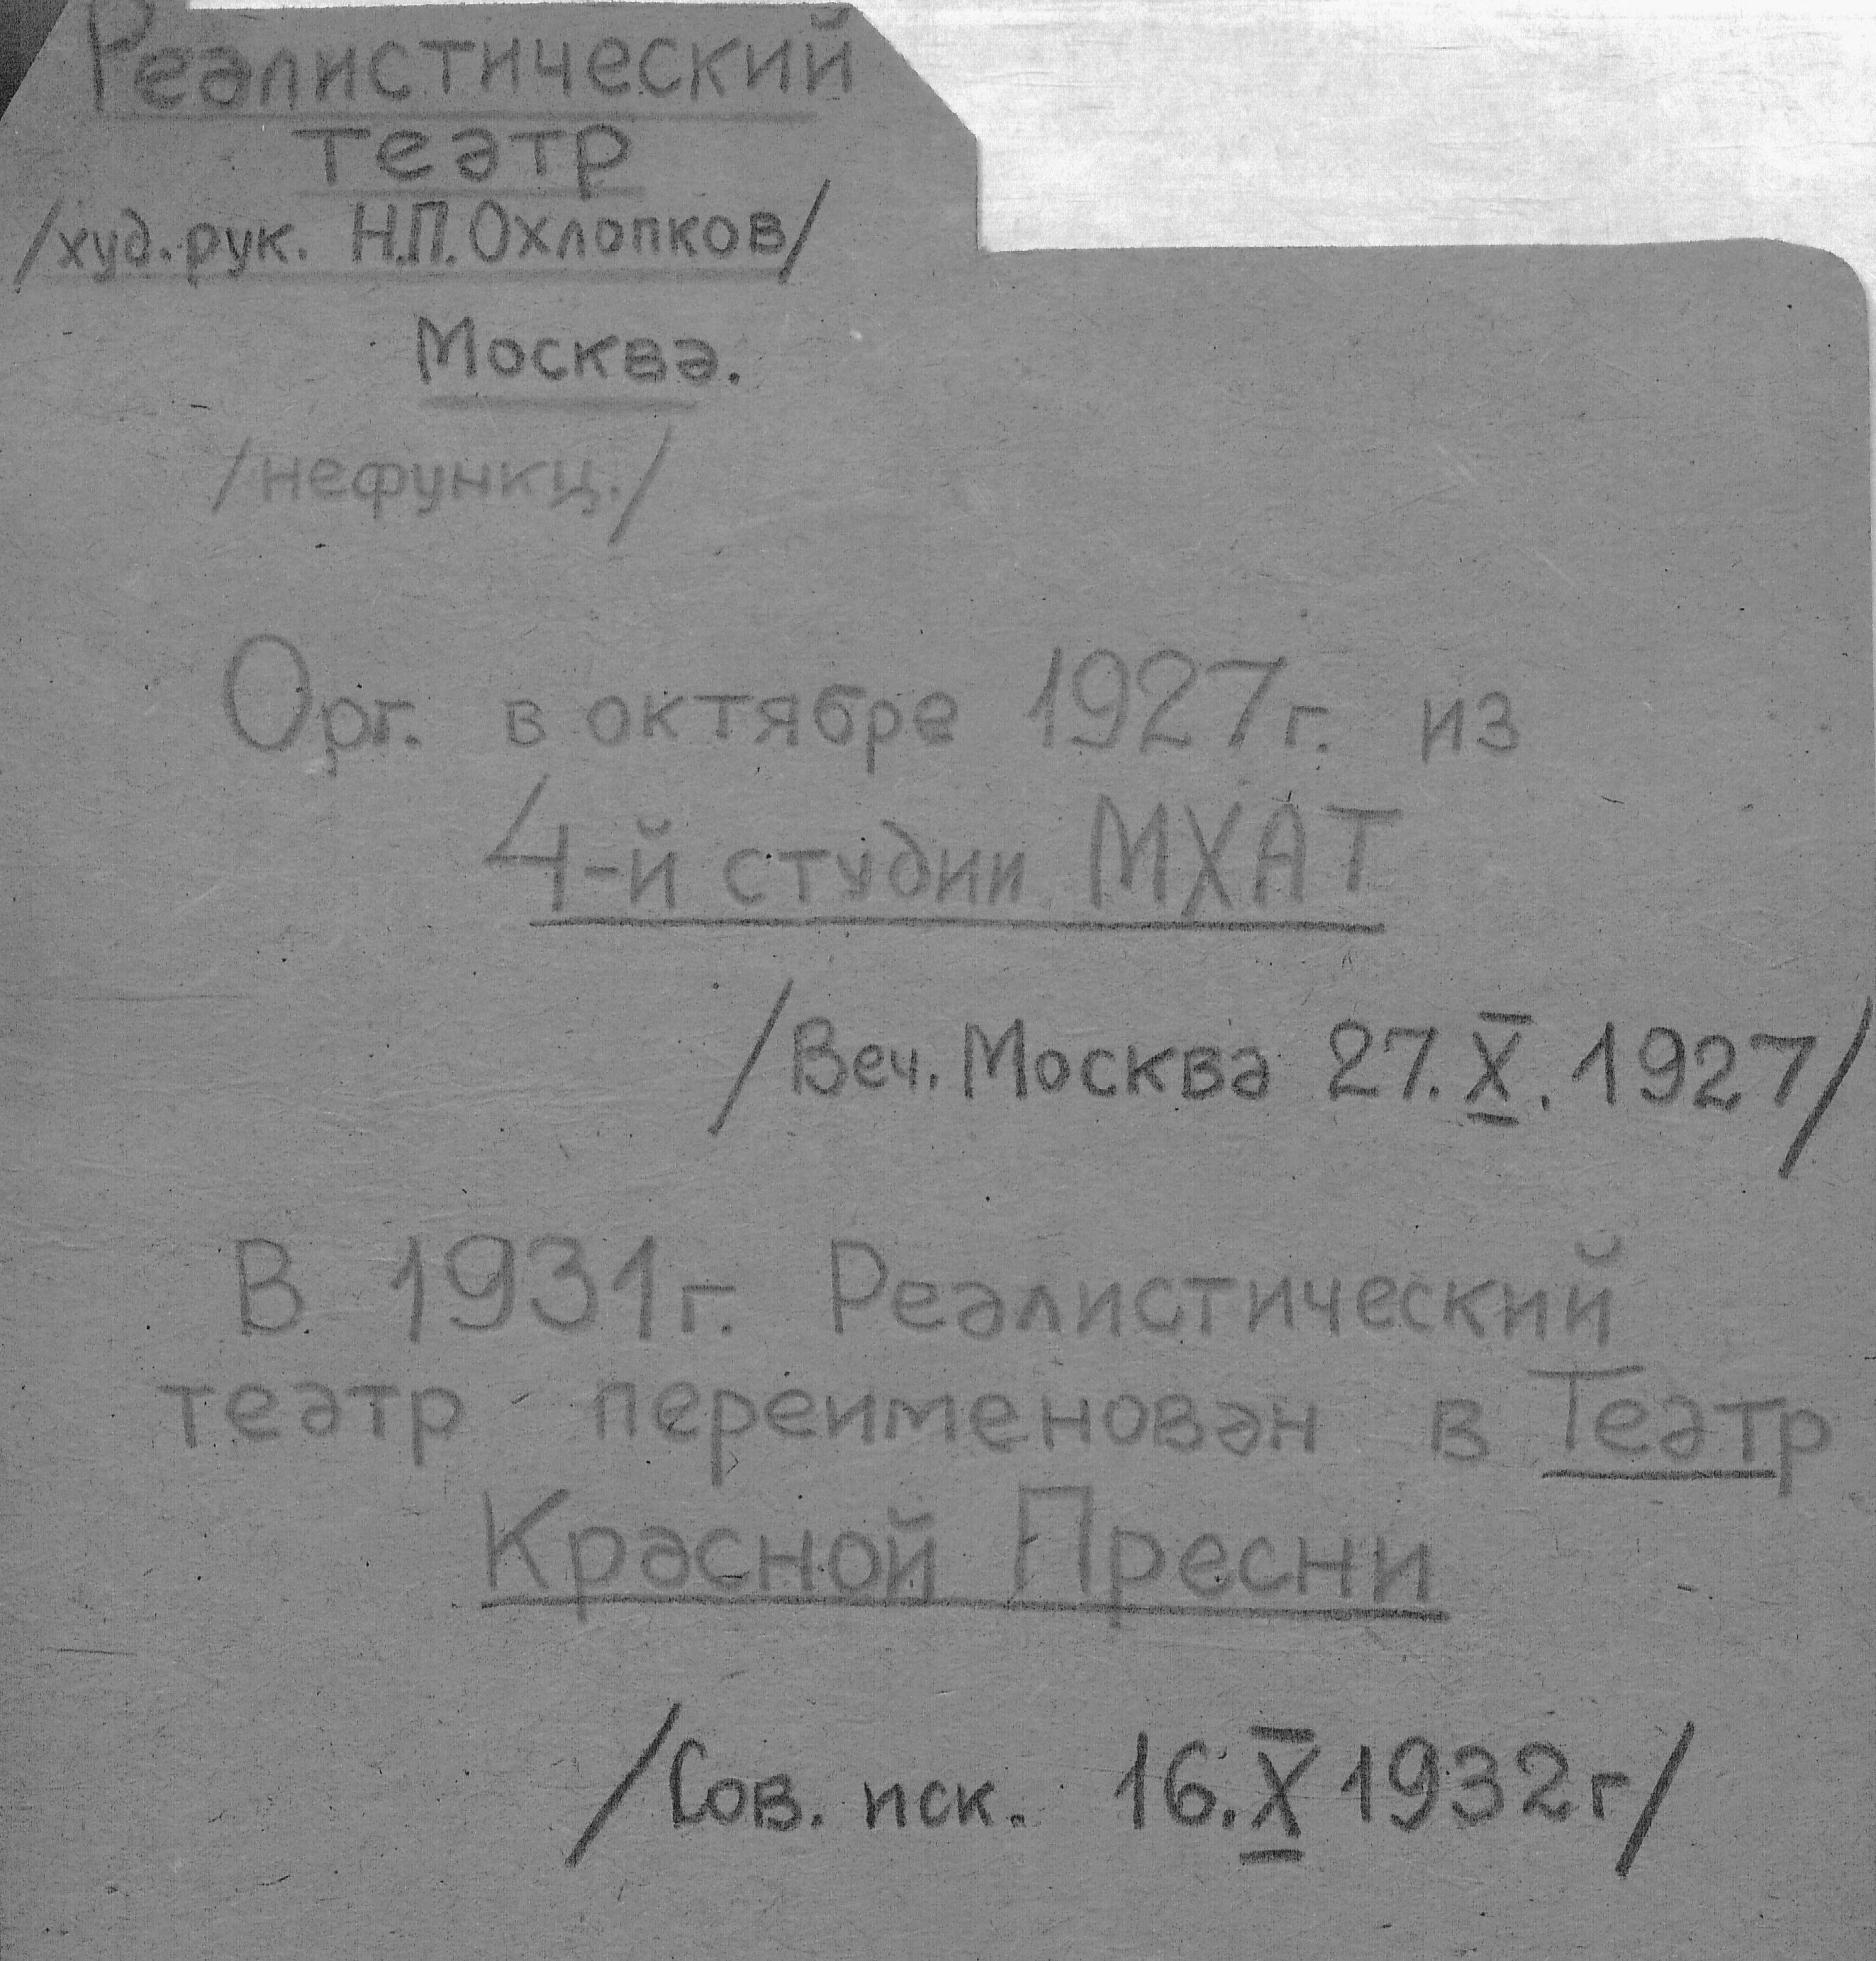 Реалистический
театр
/худ. рук. Н.П. Охлопков/
Москва.
/нефункц./
Орг. в октябре 1927 г. из
4-й студии МХАТ
/Веч. Москва 27. X. 1927/
В 1931 г. Реалистический
театр переименован в Театр
Красной Пресни
/Сов. иск. 16. X 1932 г/